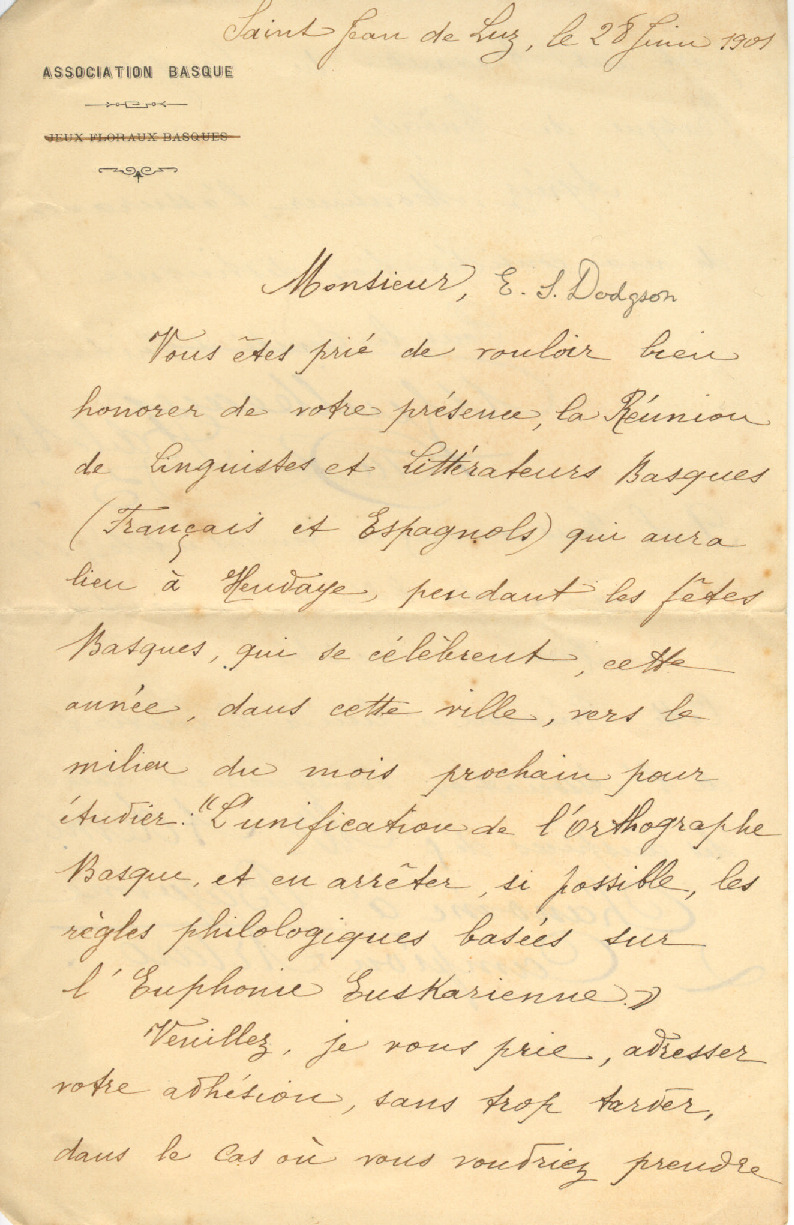 Saint Jean de Luz, le 28 Juin 1901
ASSOCIATION BASQUE
JEUX FLORAUX BASQUES
Monsieur, E. S. Dodgson
Vous êtes prié de vouloir bien
honorer de votre présence, la Réunion
de Linguistes et Littérateurs Basques
(Français et Espagnols) qui aura
lieu à Hendaye, pendant les fêtes
Basques, qui se célèbrent, cette
année, dans cette ville, vers le
milieu du mois prochain pour
étudier: "L'unification de l'Orthographe
Basque, et en arrêter, si possible, les
règles philologiques basées sur
l'Euphonie Euskarienne."
Veuillez, je vous prie, adresser
votre adhésion, sans trop tarder,
dans le cas où vous voudriez prendre